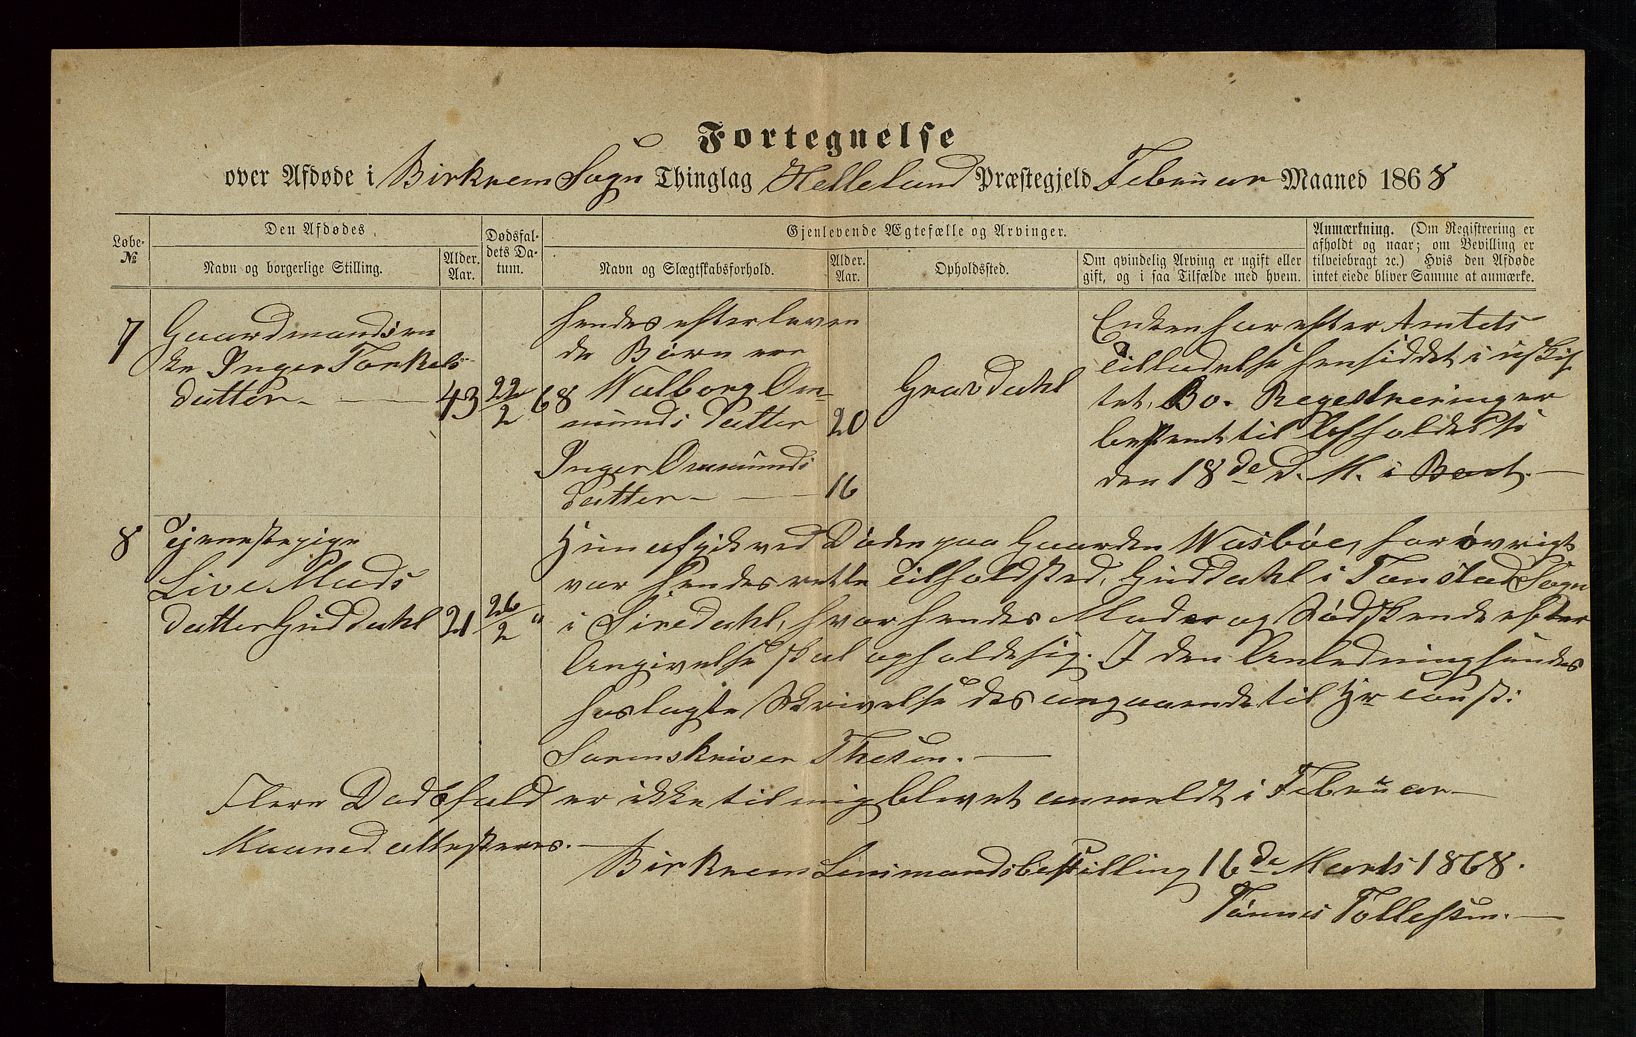 Fortegnelse
over Afdøde i Birkrem Sogn Thinglag Helleland Præstegjeld Februar Maaned 1868
Løbe-
№
Den Afdødes
Navn og borgerlige Stilling.
Alder.
Aar.
Dødsfal-
dets Da-
tum.
Gjenlevende Ægtefælle og Arvinger.
Navn og Slægtskabsforhold.
Alder.
Aar.
Opholdssted.
Om qvindelig Arving er ugift eller
gift, og i saa Tilfælde med hvem.
Anmærkning. (Om Registrering er
afholdt og naar; om Bevilling er
tilveiebragt ꝛc.) Hvis den Afdøde
intet eiede bliver Samme at anmærke.
7 Gaardmandsen
ke Inger Torkels
datter 43 22/2 68
hendes efterleven
de Børn ere
Walborg Om
munds Datter 20
Inger Ommunds
Datter 16
Gravdahl
Enken har efter Amtets
Tilladelse hensiddet i uskif
tet Bo. Registrering er
bestemt til Afholdelse
den 18de d. M. i Boet.
8 Tjenestepige
Live Mads
datter Guddahl 21 26/2 "
Hun afgik ved Døden paa Gaarden Wasbøe, for øvrigt
var hendes rette Tilholdsted, Guddahl i Tonstad Sogn
i Siredahl, hvor hendes Moder og Sødskende efter
Angivelse skal opholde sig. I den Anledning sendes
hoslagte Skrivelse des angaaende til Hr Const:
Sorenskriver Thesen.
Flere Dødsfald er ikke til mig blevet anmeldt i Februar
Maaned attesteres.
Birkrem Lensmandsbestilling 16de Marts 1868.
Tønnes Tollefsen.